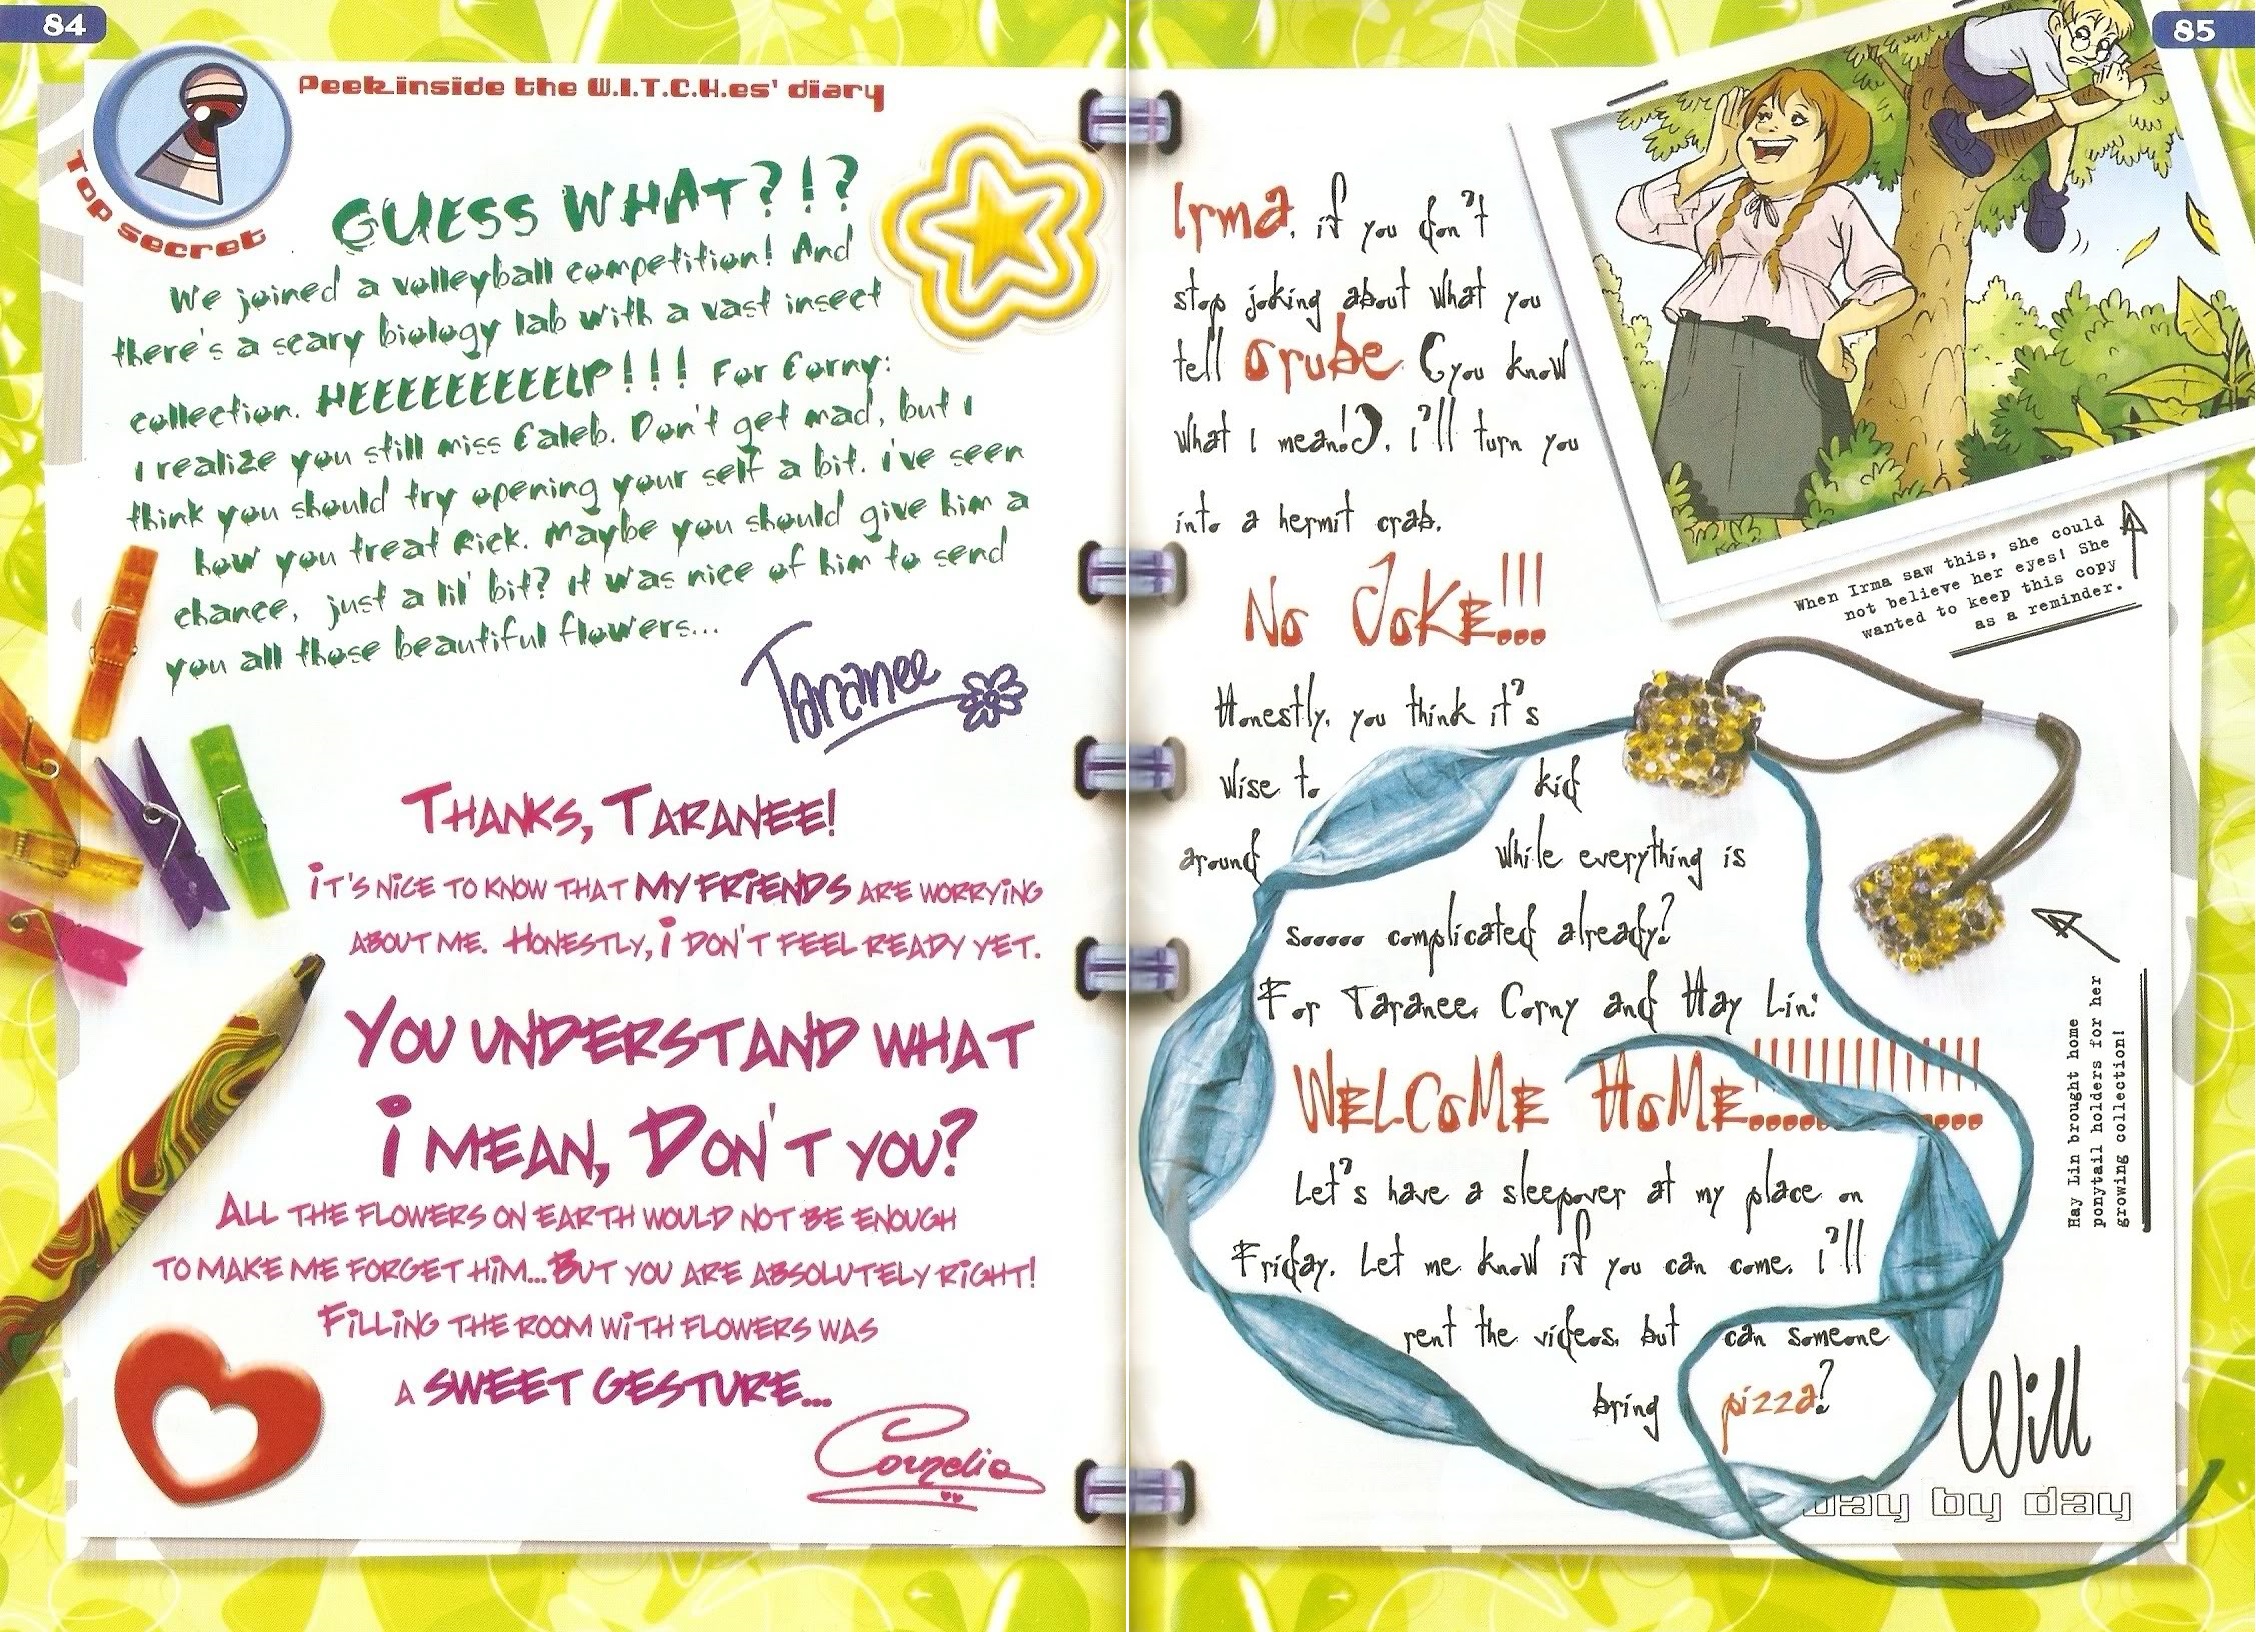 84
Peek inside the W.I.T.C.H.es' diary
Top secret
GUESS WHAT?!?
We joined a volleyball competition! And
there's a scary biology lab with a vast insect
collection. HEEEEEEEEEELP!!! For Corny:
I realize you still miss Caleb. Don't get mad, but I
think you should try opening your self a bit. I've seen
how you treat Rick. Maybe you should give him a
chance, just a lil' bit? It was nice of him to send
you all those beautiful flowers...
Taranee
THANKS, TARANEE!
IT'S NICE TO KNOW THAT MY FRIENDS ARE WORRYING
ABOUT ME. HONESTLY, I DON'T FEEL READY YET.
YOU UNDERSTAND WHAT
I MEAN, DON'T YOU?
ALL THE FLOWERS ON EARTH WOULD NOT BE ENOUGH
TO MAKE ME FORGET HIM... BUT YOU ARE ABSOLUTELY RIGHT!
FILLING THE ROOM WITH FLOWERS WAS
A SWEET GESTURE...
Cornelia
85
Irma, if you don't
stop joking about what you
tell Orube (you know
what I mean!), I'll turn you
into a hermit crab.
No JoKE!!!
Honestly, you think it's
wise to kid
around while everything is
sooooo complicated already?
For Taranee, Corny and Hay Lin:
WELCoME HoME!!!!!!!!!!!!!
Let's have a sleepover at my place on
Friday. Let me know if you can come. I'll
rent the videos, but can someone
bring pizza?
Will
When Irma saw this, she could
not believe her eyes! She
wanted to keep this copy
as a reminder.
Hay Lin brought home
ponytail holders for her
growing collection!
day by day